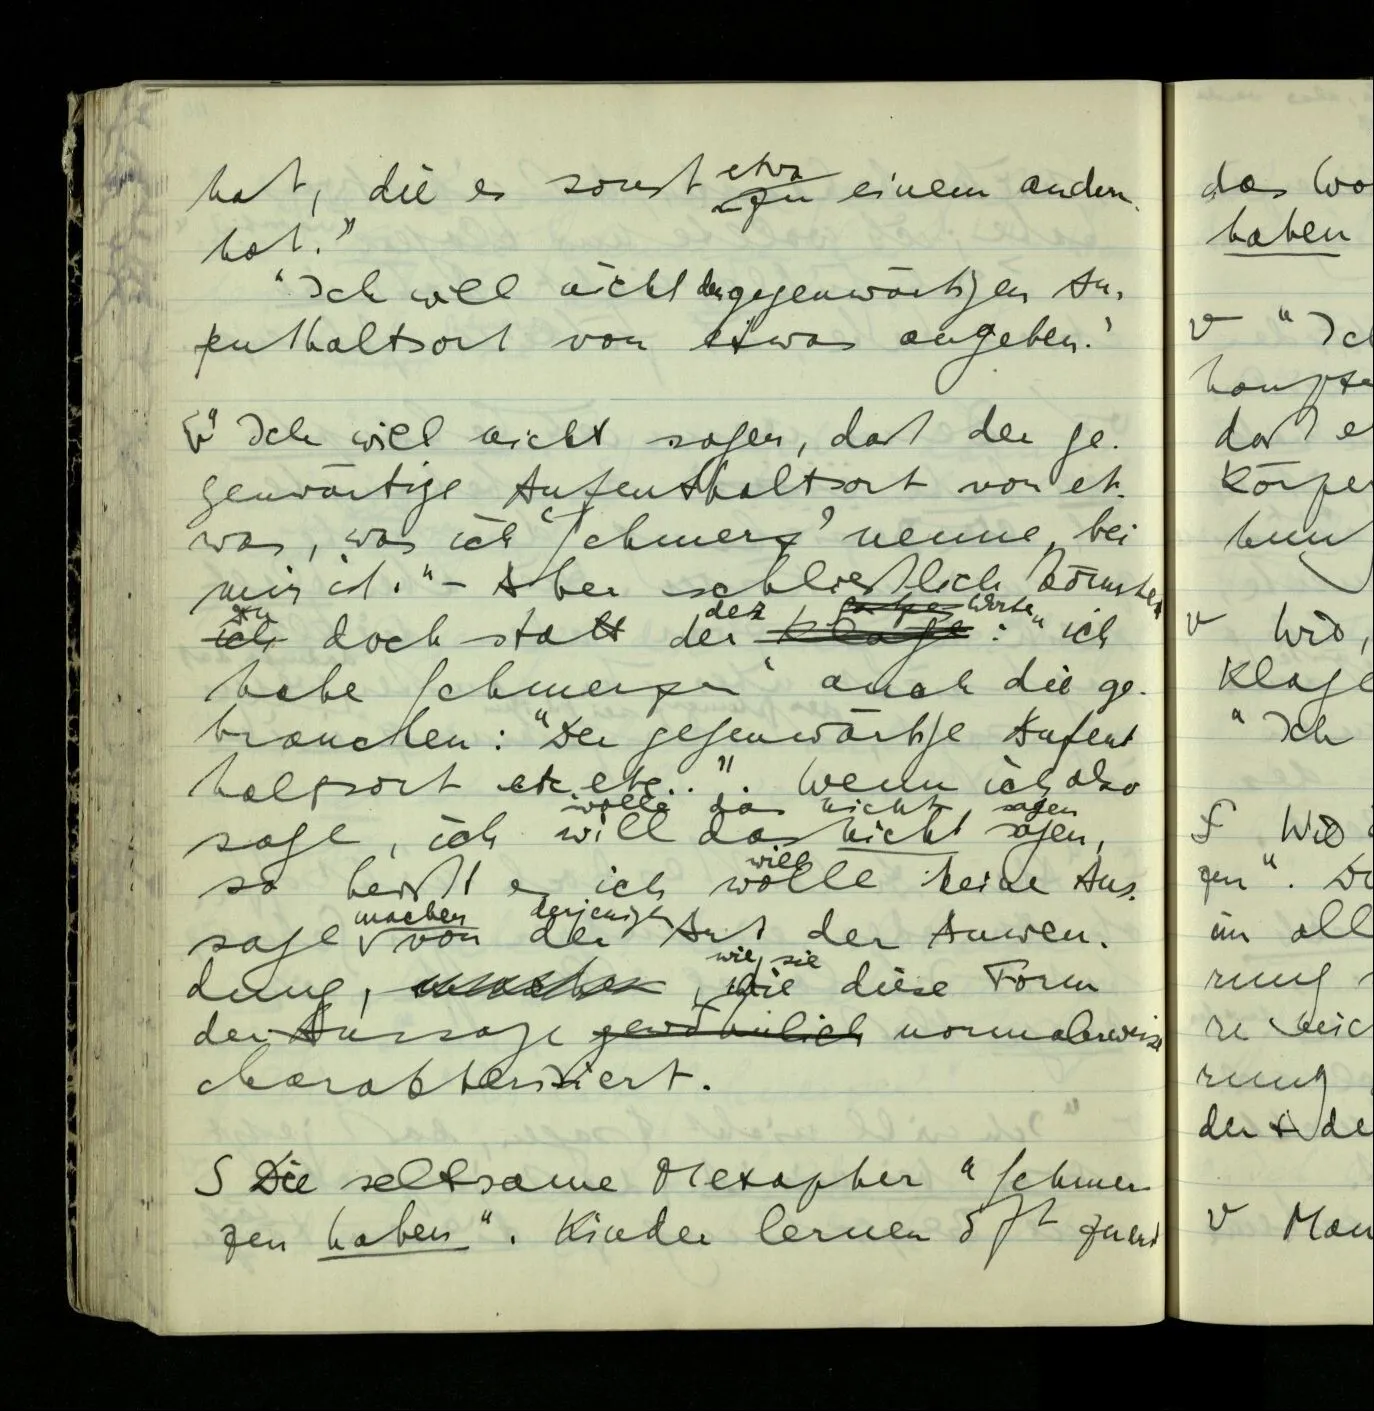 hat, die es sonst etwa zu einem andern
hat.”
“Ich will nicht den gegenwärtigen Au-
fenthaltsort von etwas angeben.”
“Ich will nicht sagen, daß der ge-
genwärtige Aufenthaltsort von et-
was, was ich ‘Schmerz’ nenne, bei
mir ist.” – Aber schließlich könnte
ich doch statt der Klage: “ich
zu der Worte
habe Schmerzen” auch die ge-
brauchen: “Der gegenwärtige Aufent
haltsort etc. etc..”. Wenn ich also
wolle das nicht sagen
sage, ich will das nicht sagen,
will
so heißt es ich wolle keine Aus-
machen derjenigen
sage von der Art der Anwen-
wie, sie
dung, machen, die diese Form
der Aussage gewöhnlich normalerweise
charakterisiert.
S Die seltsame Metapher “Schmer-
zen haben”. Kinder lernen oft zuerst
das Wo
haben
v “Ich
daß e
Körpe
v Wo,
Klage
“Ich
S Wo
zen”.
im all
rung
rung
der de
v Man